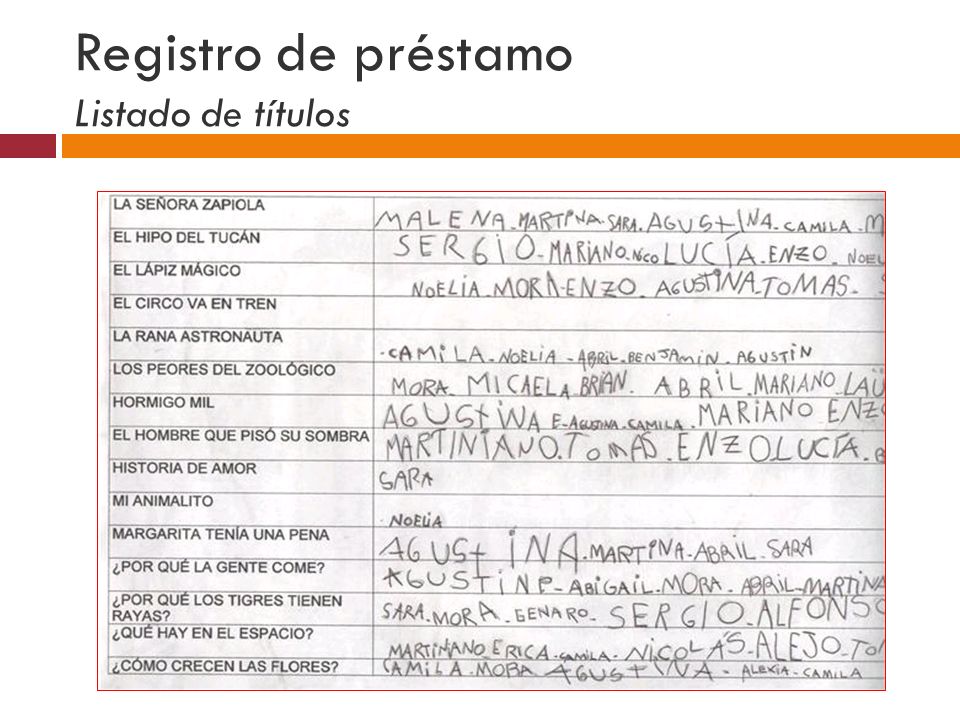 Registro de préstamo
Listado de títulos
LA SEÑORA ZAPIOLA MALENA-MARTINA-SARA-AGUSTINA-CAMILA-M
EL HIPO DEL TUCÁN SERGIO-MARIANO-NICO LUCÍA-ENZO-NOEL
EL LÁPIZ MÁGICO NOELIA-MORA-ENZO-AGUSTINA-TOMAS-
EL CIRCO VA EN TREN
LA RANA ASTRONAUTA -CAMILA-NOELIA-ABRIL-BENJAMIN-AGUSTIN
LOS PEORES DEL ZOOLÓGICO MORA-MICAELA-BRIAN-ABRIL-MARIANO-LAÜ
HORMIGO MIL AGUSTINA E-AGUSTINA-CAMILA-MARIANO ENZO
EL HOMBRE QUE PISÓ SU SOMBRA MARTINIANO-TOMÁS-ENZO LUCÍA-B
HISTORIA DE AMOR SARA
MI ANIMALITO -NOELIA
MARGARITA TENÍA UNA PENA AGUSTINA-MARTINA-ABRIL-SARA
¿POR QUÉ LA GENTE COME? AGUSTIN P-ABIGAIL-MORA-ABRIL-MARTINA
¿POR QUÉ LOS TIGRES TIENEN SARA-MORA-GENARO-SERGIO-ALFONSO
RAYAS?
¿QUÉ HAY EN EL ESPACIO? MARTINIANO ERICA-CAMILA-NICOLÁS-ALEJO-TOM
¿CÓMO CRECEN LAS FLORES? CAMILA-MORA AGUSTINA-ALEXIA-CAMILA